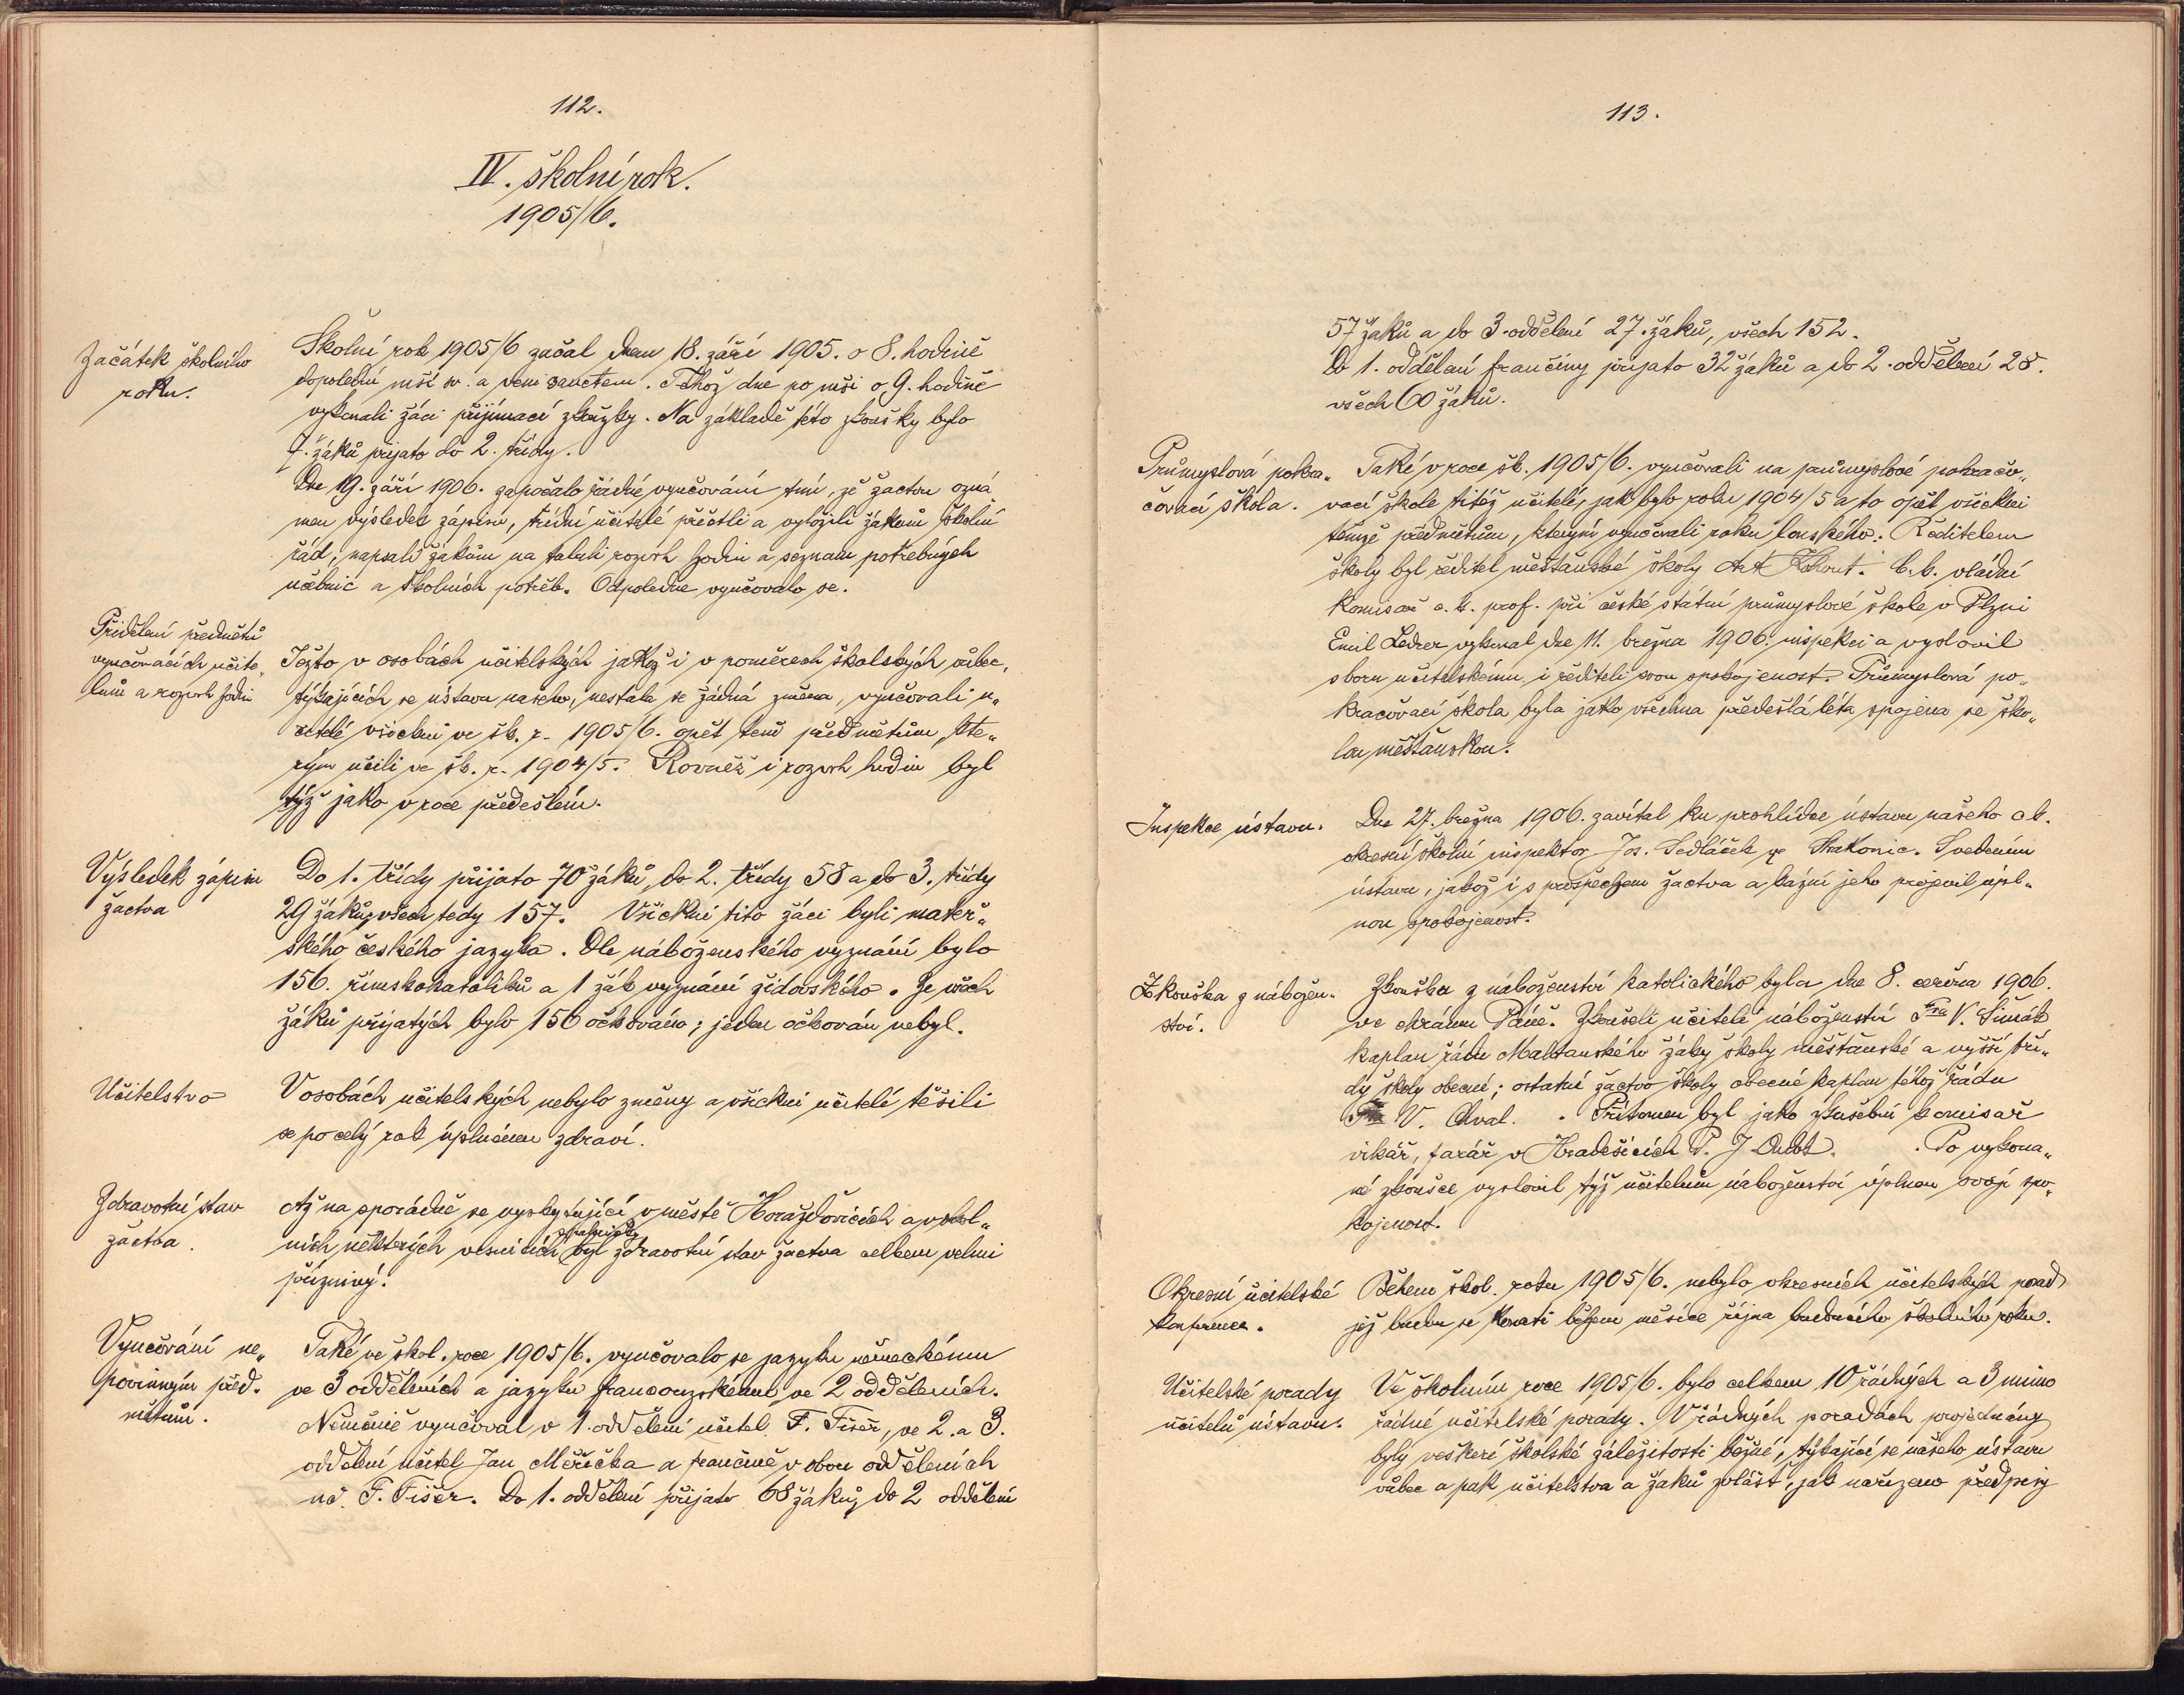 112.
IV. školní rok.
1905/6.
Začátek školního
roku.
Školní rok 1905/6 začal dnem 18. září 1905. o 8. hodině
dopolední mší sv. a veni sanctem. Téhož dne po mši o 9. hodině
vykonali žáci přijímací zkoužky. Na základě této zkoušky bylo
7. žáků přijato do 2. třídy.
Dne 19. září 1906. započalo řádné vyučování tím, že žactvu ozná„
men výsledek zápisu, třídní učitelé přečtli a vyložili žákům školní
řád, napsali žákům na tabuli rozvrh hodin a seznam potřebných
učebnic a školních potřeb. Odpoledne vyučovalo se.
Přidělení předmětů
vyučovacích učite„
lům a rozvrh hodin
Ježto v osobách učitelských jakož i v poměrech školských vůbec,
týkajících se ústavu našeho, nestala se žádná změna, vyučovali u„
čitelé všickni ve šk. r. 1905/6. opět těmž předmětům, kte„
rým učili ve šk. r. 1904/5. Rovněž i rozvrh hodin byl
týž jako v roce předešlém.
Výsledek zápisu
žactva
Do 1. třídy přijato 70 žáků, do 2. třídy 58 a do 3. třídy
29 žáků, všech tedy 157. Všickni tito žáci byli mateř„
ského českého jazyka. Dle náboženského vyznání bylo
156. římskokatolíků a 1 žák vyznání židovského. Ze všech
žáků přijatých bylo 156 očkováno; jeden očkován nebyl.
Učitelstvo
V osobách učitelských nebylo změny a všickni učitelé těšili
se po celý rok úplnému zdraví.
Zdravotní stav
žactva.
Až na sporádně se vyskytující v městě Horažďovicích a okol„
ních některých vesnicích byl zdravotní stav žactva celkem velmi
příznivý.
Vyučování ne„
povinným před„
mětům.
Také ve škol. roce 1905/6. vyučovalo se jazyku německému
ve 3 odděleních a jazyku francouzskému ve 2 odděleních.
Němčině vyučoval v 1. oddělení učitel F. Fišer, ve 2. a 3.
oddělení učitel Jan Měřička a frančině v obou odděleních
uč. F. Fišer. Do 1. oddělení přijato 68 žáků, do 2 oddělení
113.
57 žáků a do 3. oddělení 27. žáků, všech 152.
Do 1. oddělení frančiny přijato 32 žáků a do 2. oddělení 28.
všech 60 žáků.
Průmyslová pokra„
čovací škola.
Také v roce šk. 1905/6. vyučovali na průmyslové pokračo„
vací škole titéž učitelé, jak bylo roku 1904/5 a to opět všickni
témže předmětům, kterým vyučovali roku loňského. Ředitelem
školy byl ředitel měšťanské školy Ant. Kohout. C. k. vládní
komisař c. k. prof. při české státní průmyslové škole v Plzni
Emil Ledrer vykonal dne 11. března 1906. inspekci a vyslovil
sboru učitelskému i řediteli svou spokojenost. Průmyslová po„
kračovací škola byla jako všechna předešlá léta spojena se ško„
lou měšťanskou.
Inspekce ústavu.
Dne 27. března 1906. zavítal ku prohlídce ústavu našeho c. k.
okresní školní inspektor Jos. Sedláček ze Strakonic. S vedením
ústavu, jakož i s prospěchem žactva a kázní jeho projevil úpl„
nou spokojenost.
Zkouška z nábožen„
ství.
Zkouška z náboženství katolického byla dne 8. června 1906.
ve chrámu Páně. Zkoušeli učitelé náboženství Fra V. Šimák
kaplan řádu Maltanského žáky školy měšťanské a vyšší tří„
dy školy obecné; ostatní žactvo školy obecné kaplan téhož řádu
Fra V. Chval. Přítomen byl jako zkušební komisař
vikář, farář v Hradešicích P. J. . Po vykona„
né zkoušce vyslovil týž učitelům náboženství úplnou svoji spo„
kojenost.
Okresní učitelské
konference.
Během škol. roku 1905/6. nebylo okresních učitelských porad
jež budou se konati během měsíce října budoucího školního roku.
Učitelské porady
učitelů ústavu.
Ve školním roce 1905/6. bylo celkem 10 řádných a 3 mimo
řádné učitelské porady. V řádných poradách projednány
byly veškeré školské záležitosti běžné, týkající se našeho ústavu
vůbec a pak učitelstva a žáků zvlášť, jak nařízeno předpisy